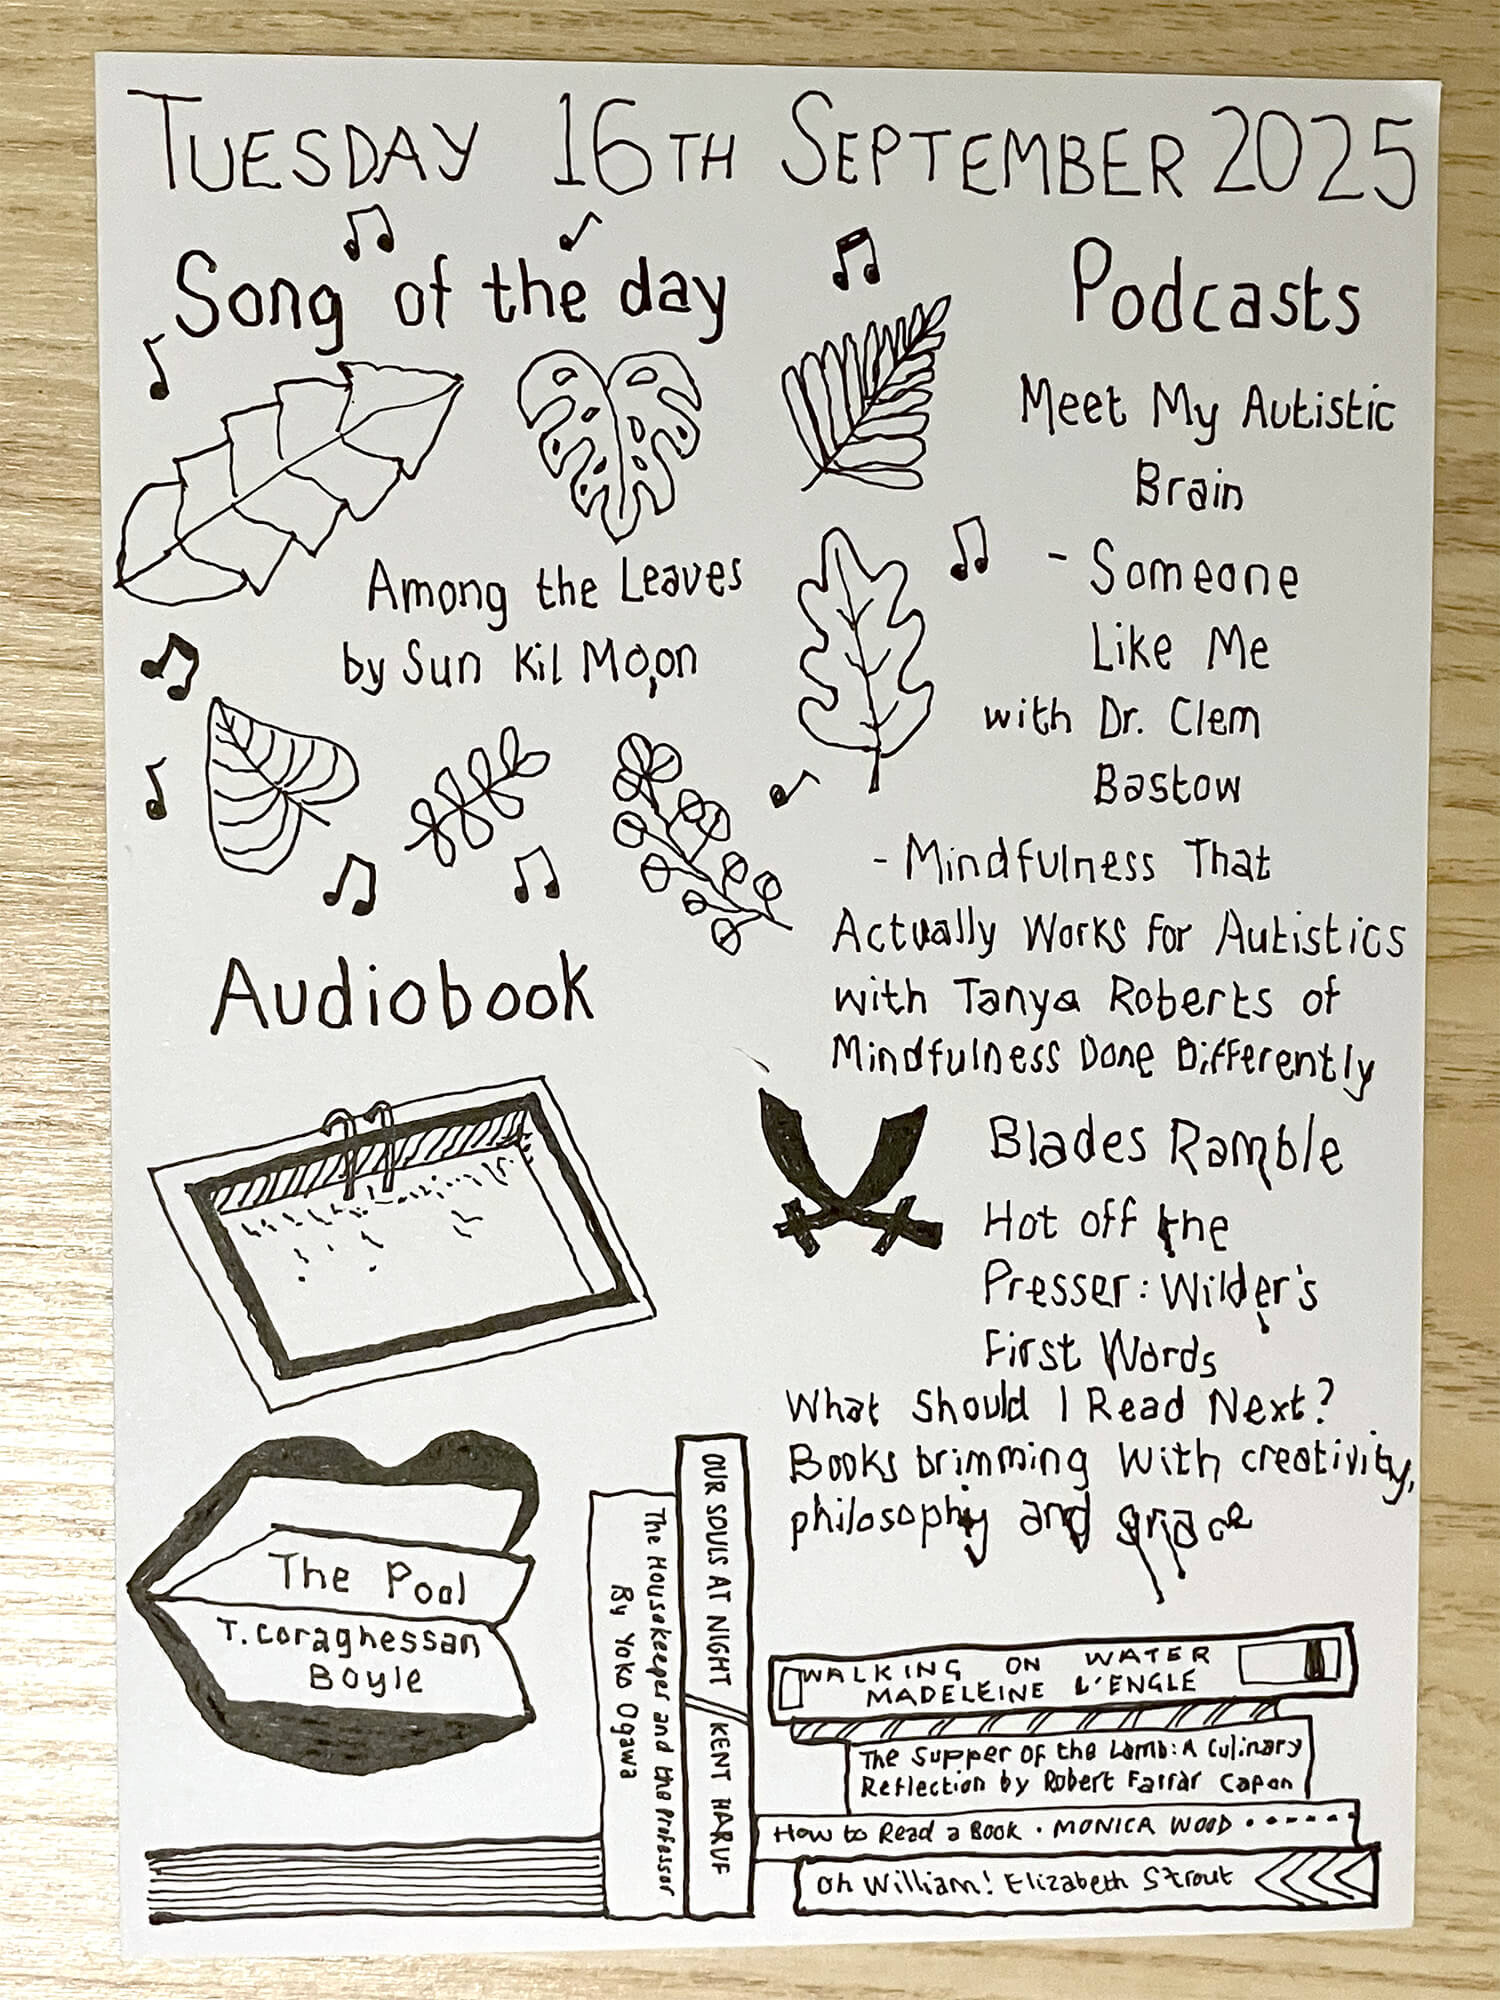 TUESDAY 16TH SEPTEMBER 2025
Song of the day
Among the Leaves
by Sun Kil Moon
Podcasts
Meet My Autistic
Brain
- Someone
Like Me
with Dr. Clem
Bastow
- Mindfulness That
Actually Works for Autistics
with Tanya Roberts of
Mindfulness Done Differently
Blades Ramble
Hot off the
Presser: Wilder's
First Words
What Should I Read Next?
Books brimming with creativity,
philosophy and grace
Audiobook
The Pool
T. Coraghessan
Boyle
The Housekeeper and the Professor
By Yoko Ogawa
OUR SOULS AT NIGHT // KENT HARUF
WALKING ON WATER
MADELEINE L'ENGLE
The Supper of the Lamb: A Culinary
Reflection by Robert Farrar Capon
How to Read a Book • MONICA WOOD
Oh William! Elizabeth Strout